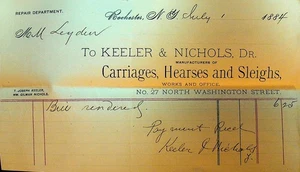 REPAIR DEPARTMENT.
Rochester, N. Y. July 1 1884
M M Leyden
TO KEELER & NICHOLS, DR.
MANUFACTURERS OF
Carriages, Hearses and Sleighs,
WORKS AND OFFICE,
T. JOSEPH KEELER,
WM. GILMAN NICHOLS.
No. 27 NORTH WASHINGTON STREET.
Bill rendered 6 25
Payment Recd
Keeler & Nichols